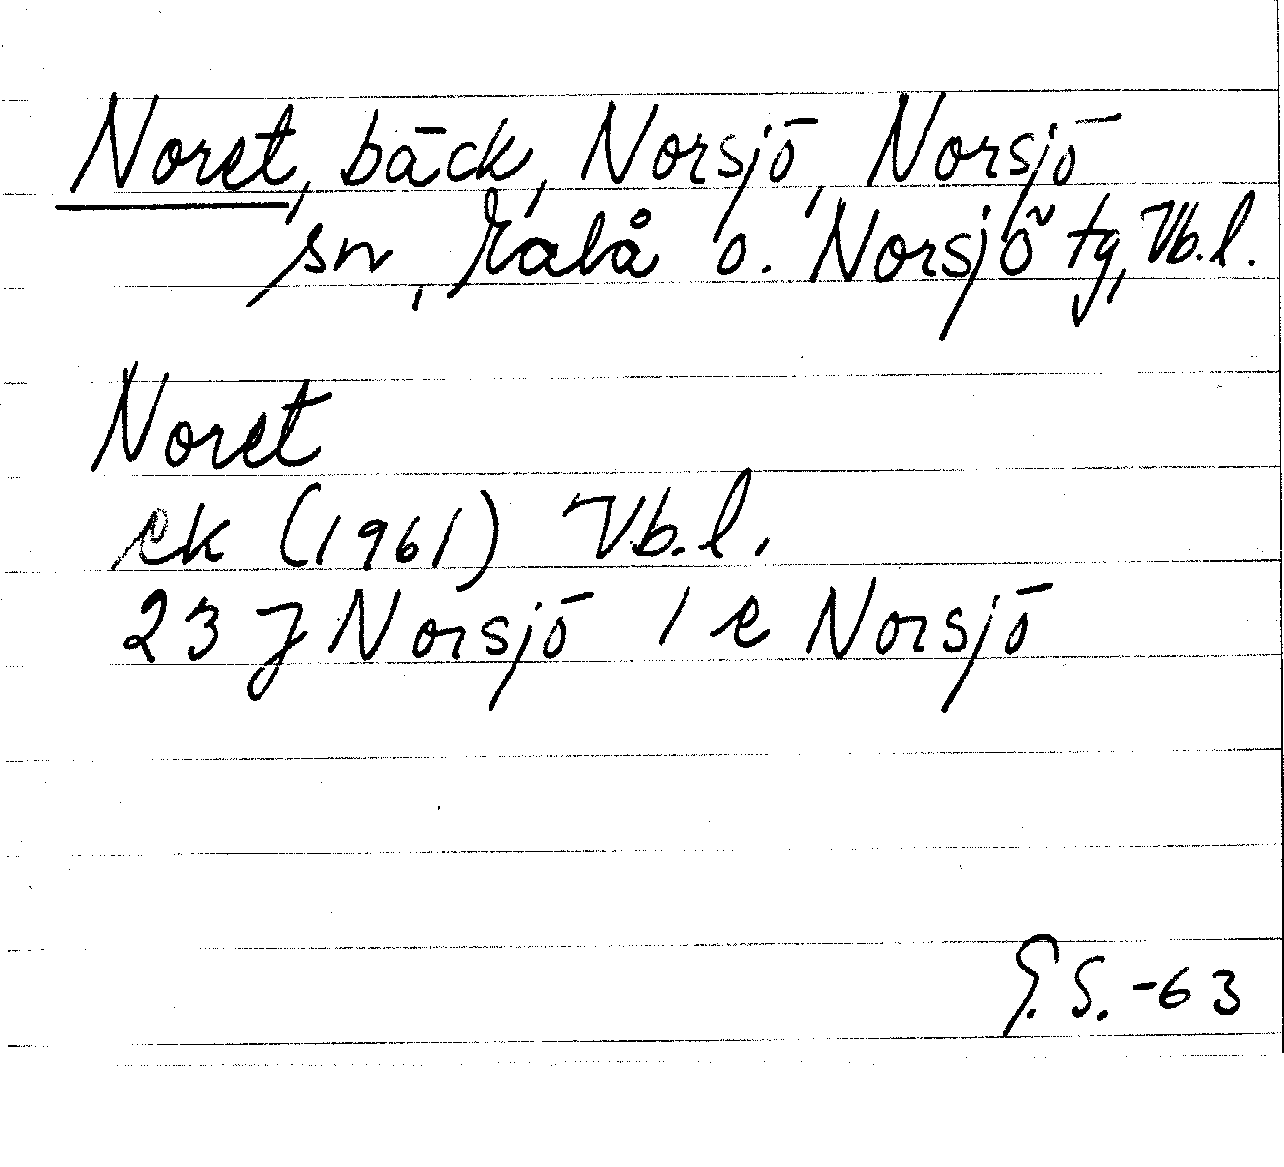 Noret, bäck, Norsjö, Norsjö
sn, Malå o. Norsjö tg, Vb.l.
Noret
ek (1961) Vb.l.
23 J Norsjö 1 e Norsjö
G.S.-63